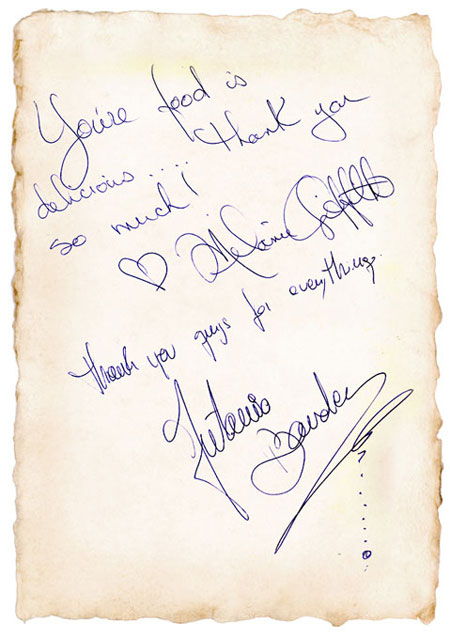 You're food is
delicious..... thank you
so much!
♡ Melanie Griffith
thank you guys for everything.
Antonio
Banderas